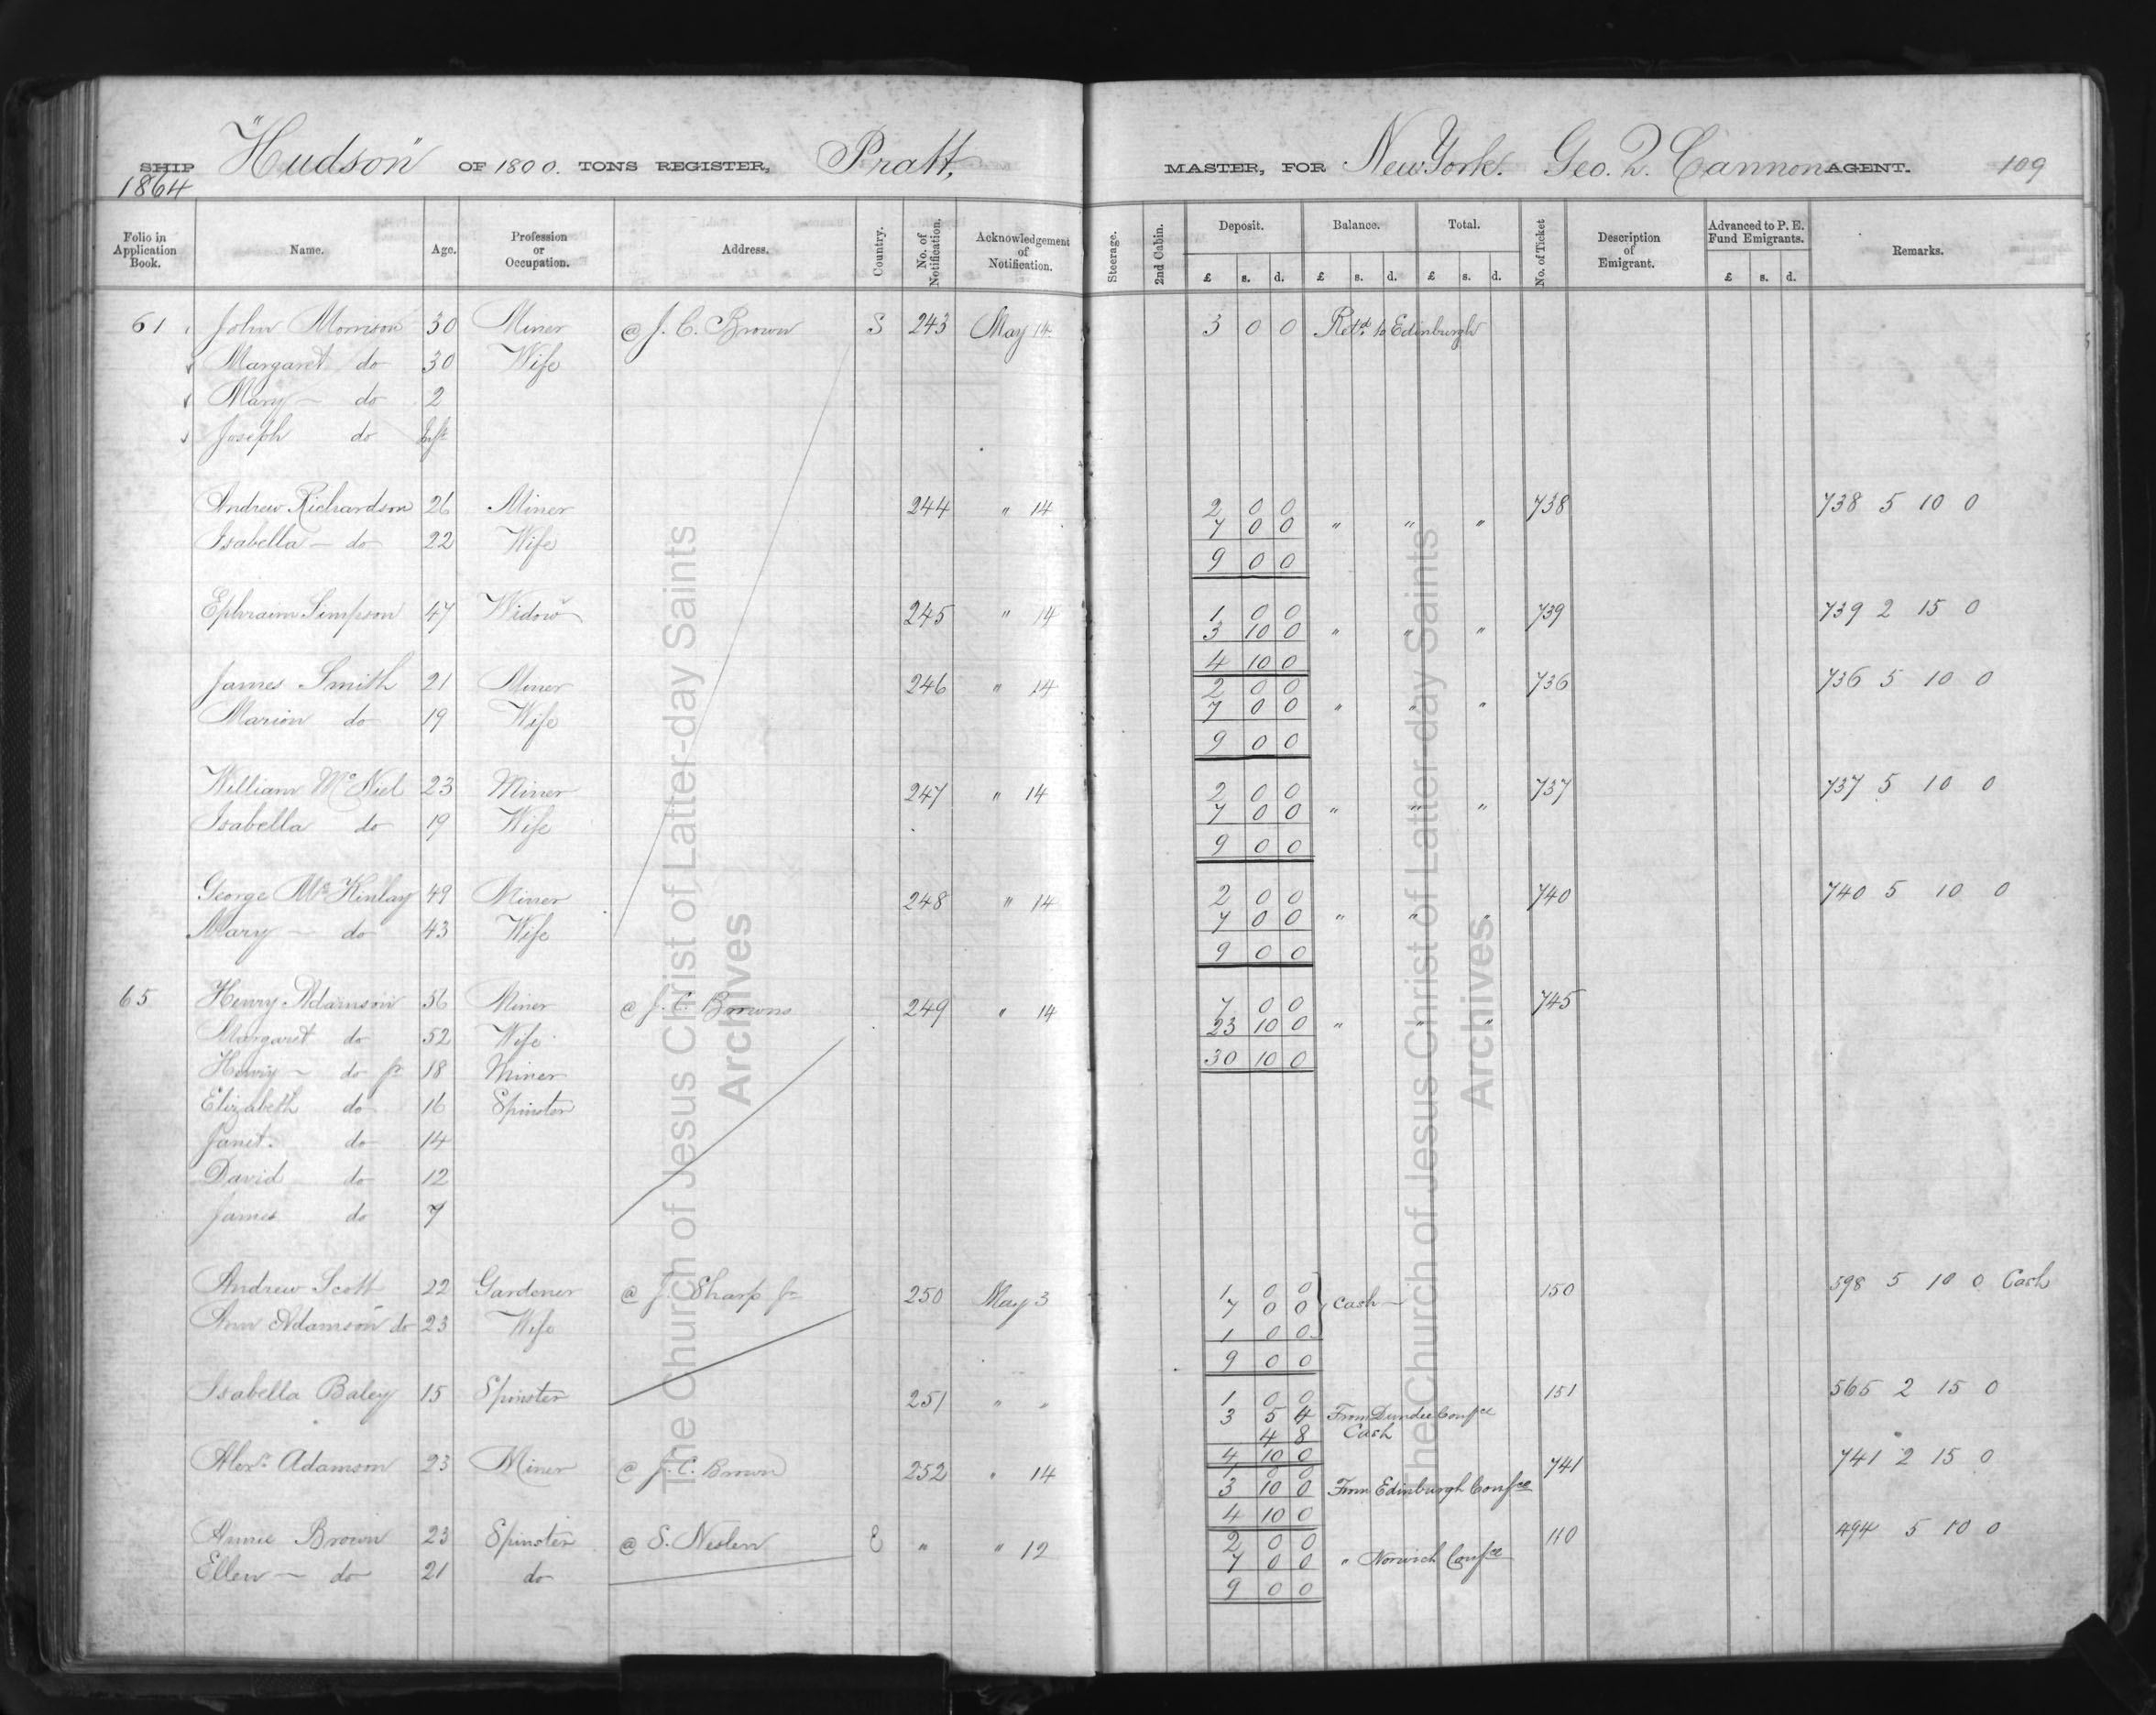 SHIP "Hudson" OF 1800. TONS REGISTER, Pratt, MASTER, FOR New York. Geo. Q. Cannon AGENT. 109
1864
Folio in Application Book. Name. Age. Profession or Occupation. Address. Country. No. of Notification. Acknowledgement of Notification. Steerage. 2nd Cabin. Deposit. £ s. d. Balance. £ s. d. Total. £ s. d. No. of Ticket Description of Emigrant. Advanced to P. E. Fund Emigrants. £ s. d. Remarks.
61 John Morrison 30 Miner @ J. C. Brown S 243 May 14 3 0 0 Retd. to Edinburgh
Margaret do 30 Wife
Mary do 2
Joseph do Inft
Andrew Richardson 26 Miner 244 " 14 2 0 0 738 738 5 10 0
7 0 0 " " "
Isabella do 22 Wife
9 0 0
Ephraim Simpson 47 Widowr 245 " 14 1 0 0 739 739 2 15 0
3 10 0 " " "
4 10 0
James Smith 21 Miner 246 " 14 2 0 0 736 736 5 10 0
Marion do 19 Wife 7 0 0 " " "
9 0 0
William McNiel 23 Miner 247 " 14 2 0 0 737 737 5 10 0
7 0 0 " " "
Isabella do 19 Wife
9 0 0
George McKinlay 49 Miner 248 " 14 2 0 0 740 740 5 10 0
7 0 0 " " "
Mary do 43 Wife
9 0 0
65 Henry Adamson 56 Miner @ J. C. Browns 249 " 14 7 0 0 745
Margaret do 52 Wife 23 10 0 " " "
30 10 0
Henry do Jr 18 Miner
Elizabeth do 16 Spinster
Janet. do 14
David do 12
James do 7
Andrew Scott 22 Gardener @ J. Sharp Jr 250 May 3 1 0 0 150 598 5 10 0 Cash
7 0 0 Cash
Ann Adamson do 23 Wife 1 0 0
9 0 0
Isabella Baley 15 Spinster 251 " " 1 0 0 151 565 2 15 0
3 5 4 From Dundee Confce
4 8 Cash
4 10 0
Alexr. Adamson 23 Miner @ J. C. Brown 252 " 14 1 0 0 741 741 2 15 0
3 10 0 From Edinburgh Confce
4 10 0
Annie Brown 23 Spinster @ S. Neslen E " " 12 2 0 0 110 494 5 10 0
7 0 0 " Norwich Confce
Ellen do 21 do
9 0 0
The Church of Jesus Christ of Latter-day Saints
Archives
The Church of Jesus Christ of Latter-day Saints
Archives